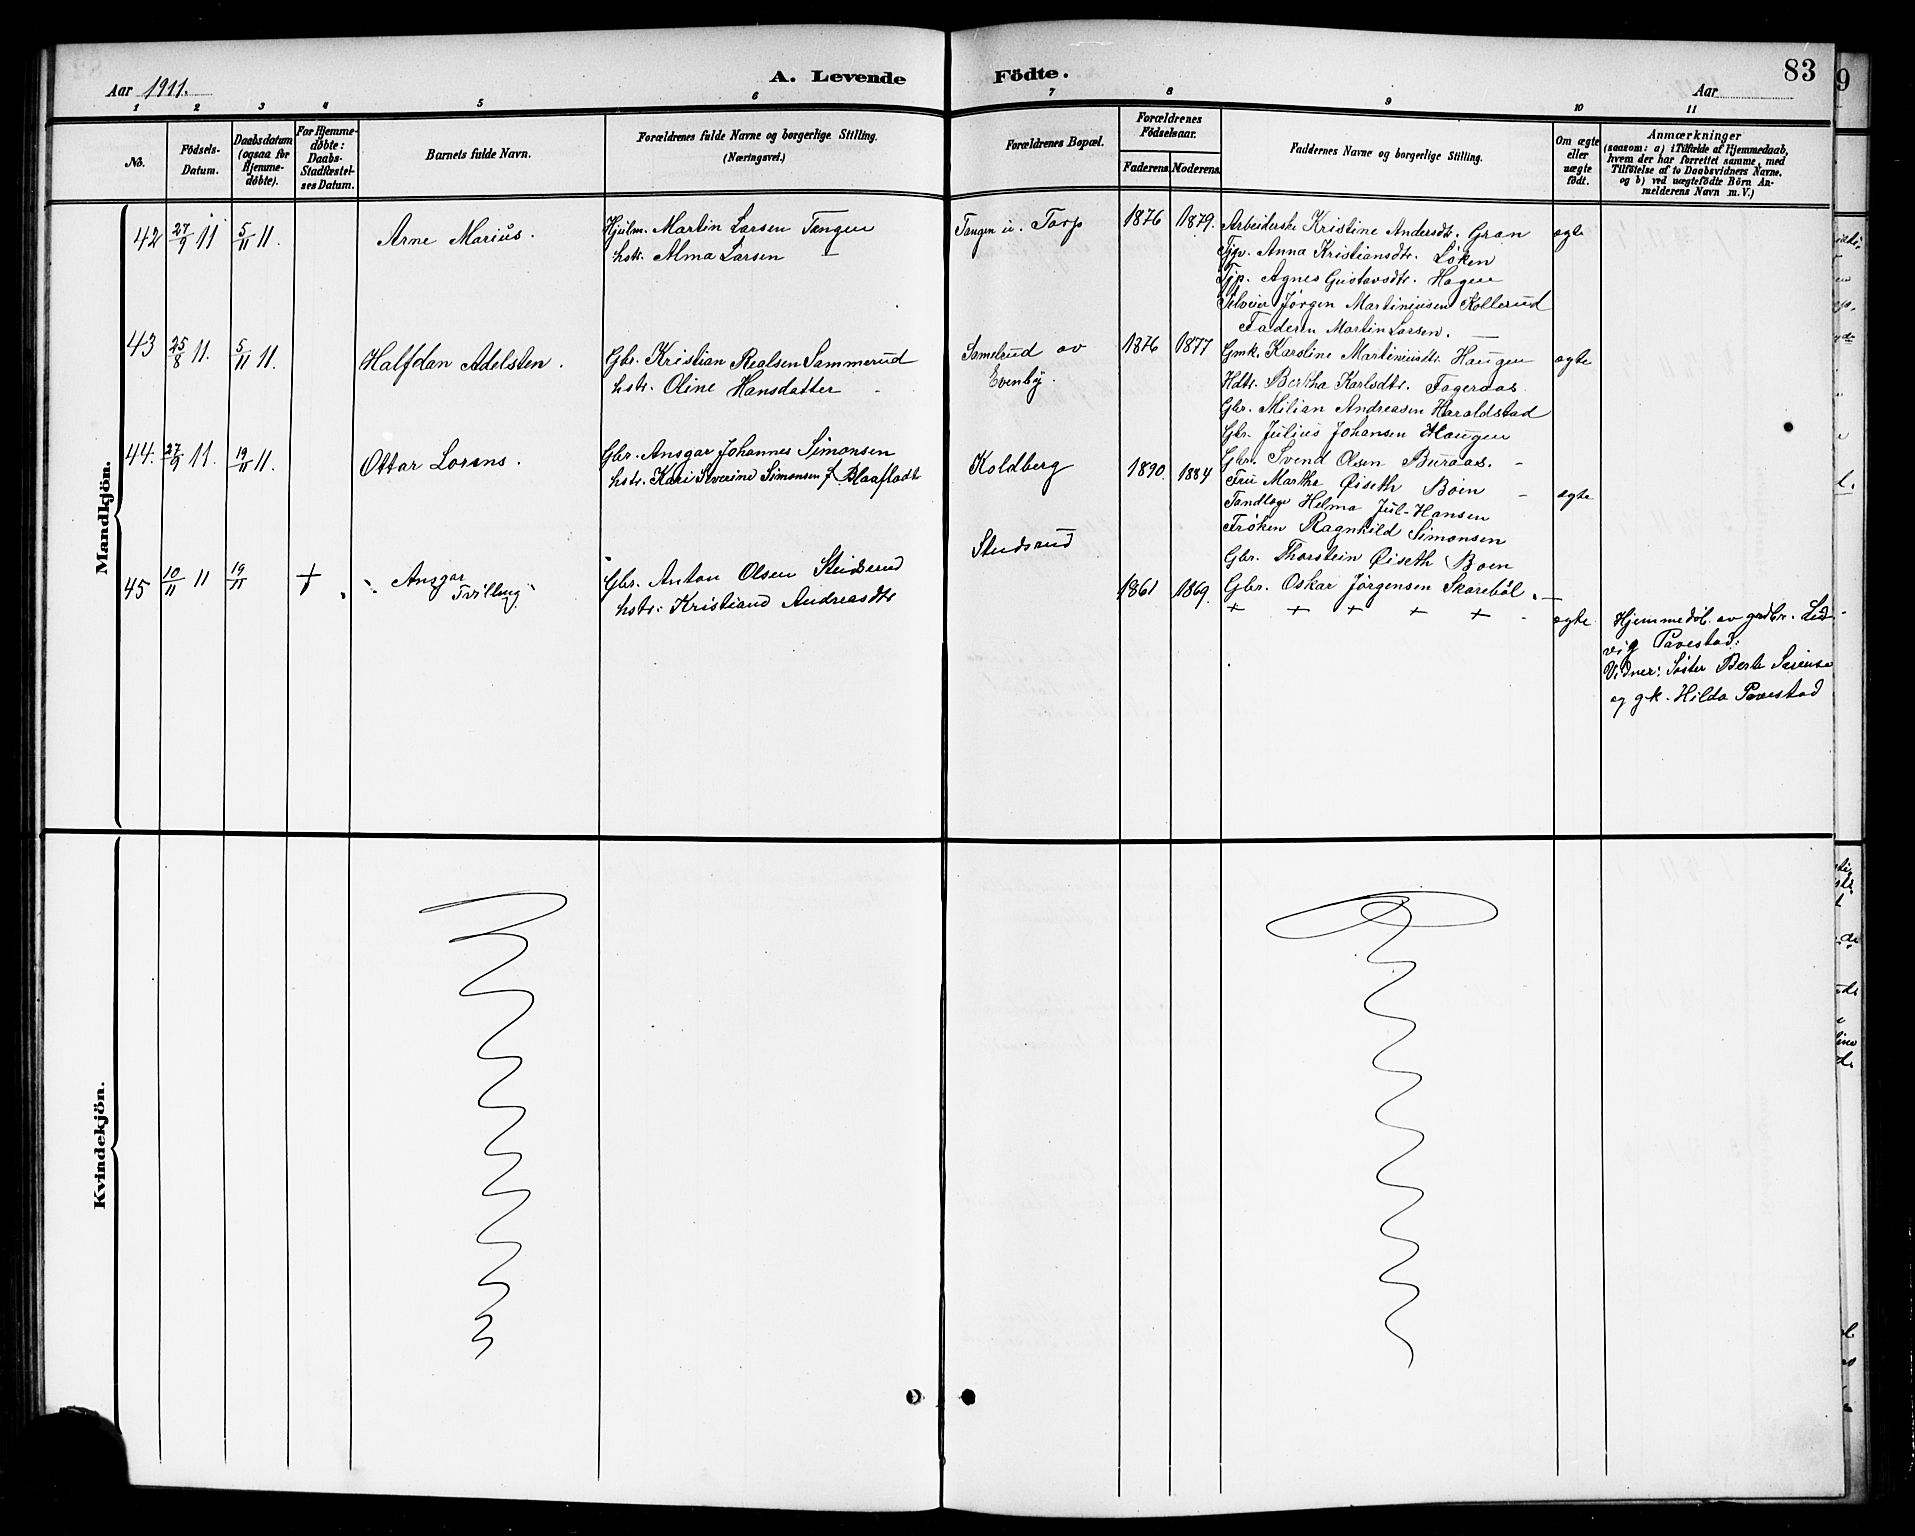 A. Levende Födte.
83
Aar 1911.
Aar
1 2 3 4 5 6 7 8 9 10 11
No.
Födsels-
Datum.
Daabsdatum
(ogsaa for
Hjemme-
döbte).
For Hjemme-
døbte:
Daabs-
Stadfæstel-
ses Datum.
Barnets fulde Navn.
Forældrenes fulde Navne og borgerlige Stilling.
(Næringsvei.)
Forældrenes Bopæl.
Forældrenes
Födselsaar.
Faderens. Moderens.
Faddernes Navne og borgerlige Stilling.
Om ægte
eller
uægte
født.
Anmærkninger
(saasom: a) i Tilfælde af Hjemmedaab,
hvem der har forrettet samme, med
Tilføielse af to Daabsvidners Navne.
og b) ved uægtefödte Börn An-
melderens Navn m. V.)
Mandkjön.
42 27/9 11 5/11 11. Arne Marius.
Hjulm. Martin Larsen Tangen
hstr. Alma Larsen
Tangen u. Torp
1876 1879.
Arbeiderske Kristine Andersdtr. Gran
Tjp. Anna Kristiansdtr. Löken
Tjp. Agnes Gustavsdtr. Hagen
Jørgen Martiniusen Kollerud
Faderen Martin Larsen.
ægte
43 25/8 11. 5/11 11. Halfdan Adelsten.
Gbr. Kristian Realsen Sammerud
hstr. Oline Hansdatter
Samelrud av
Evenby.
1876 1877
Gmk. Karoline Martiniusdtr. Haugen
Hdtr. Bertha Karlsdtr. Fageraas
Gbr. Milian Andreasen Haraldstad
Gbr. Julius Johansen Haugen
Gbr. Svend Olsen Buraas.
ægte
44. 27/9 11. 19/11 11. Ottar Lorens.
Gbr. Ansgar Johannes Simonsen
hstr. Kari Severine Simonsen f. Blaafladt
Koldberg
1890. 1884
Fru Marthe Øiseth Boen
Helma Jul-Hansen
Frøken Ragnhild Simonsen
Gbr. Thorstein Øiseth Boen
Gbr. Oskar Jørgensen Skarebøl.
ægte
45 10/11 11 19/11 + Ansgar
Tvilling
Gbr. Anton Olsen Studsrud
hstr. Kristiane Andreasdtr
Studsrud
1861 1869.
+ + + + +
ægte
Hjemmedøb. av grdbr. Lud-
vig Pavestad.
Vidner: Søster Berte Sørense
og gk. Hilda Pavestad
Kvindekjön.